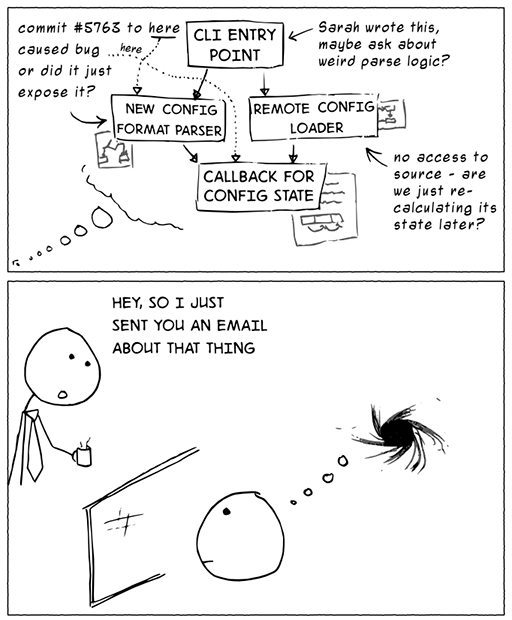 commit #5763 to here
caused bug ...here
or did it just
expose it?
CLI ENTRY
POINT
Sarah wrote this,
maybe ask about
weird parse logic?
NEW CONFIG
FORMAT PARSER
REMOTE CONFIG
LOADER
CALLBACK FOR
CONFIG STATE
no access to
source - are
we just re-
calculating its
state later?
HEY, SO I JUST
SENT YOU AN EMAIL
ABOUT THAT THING